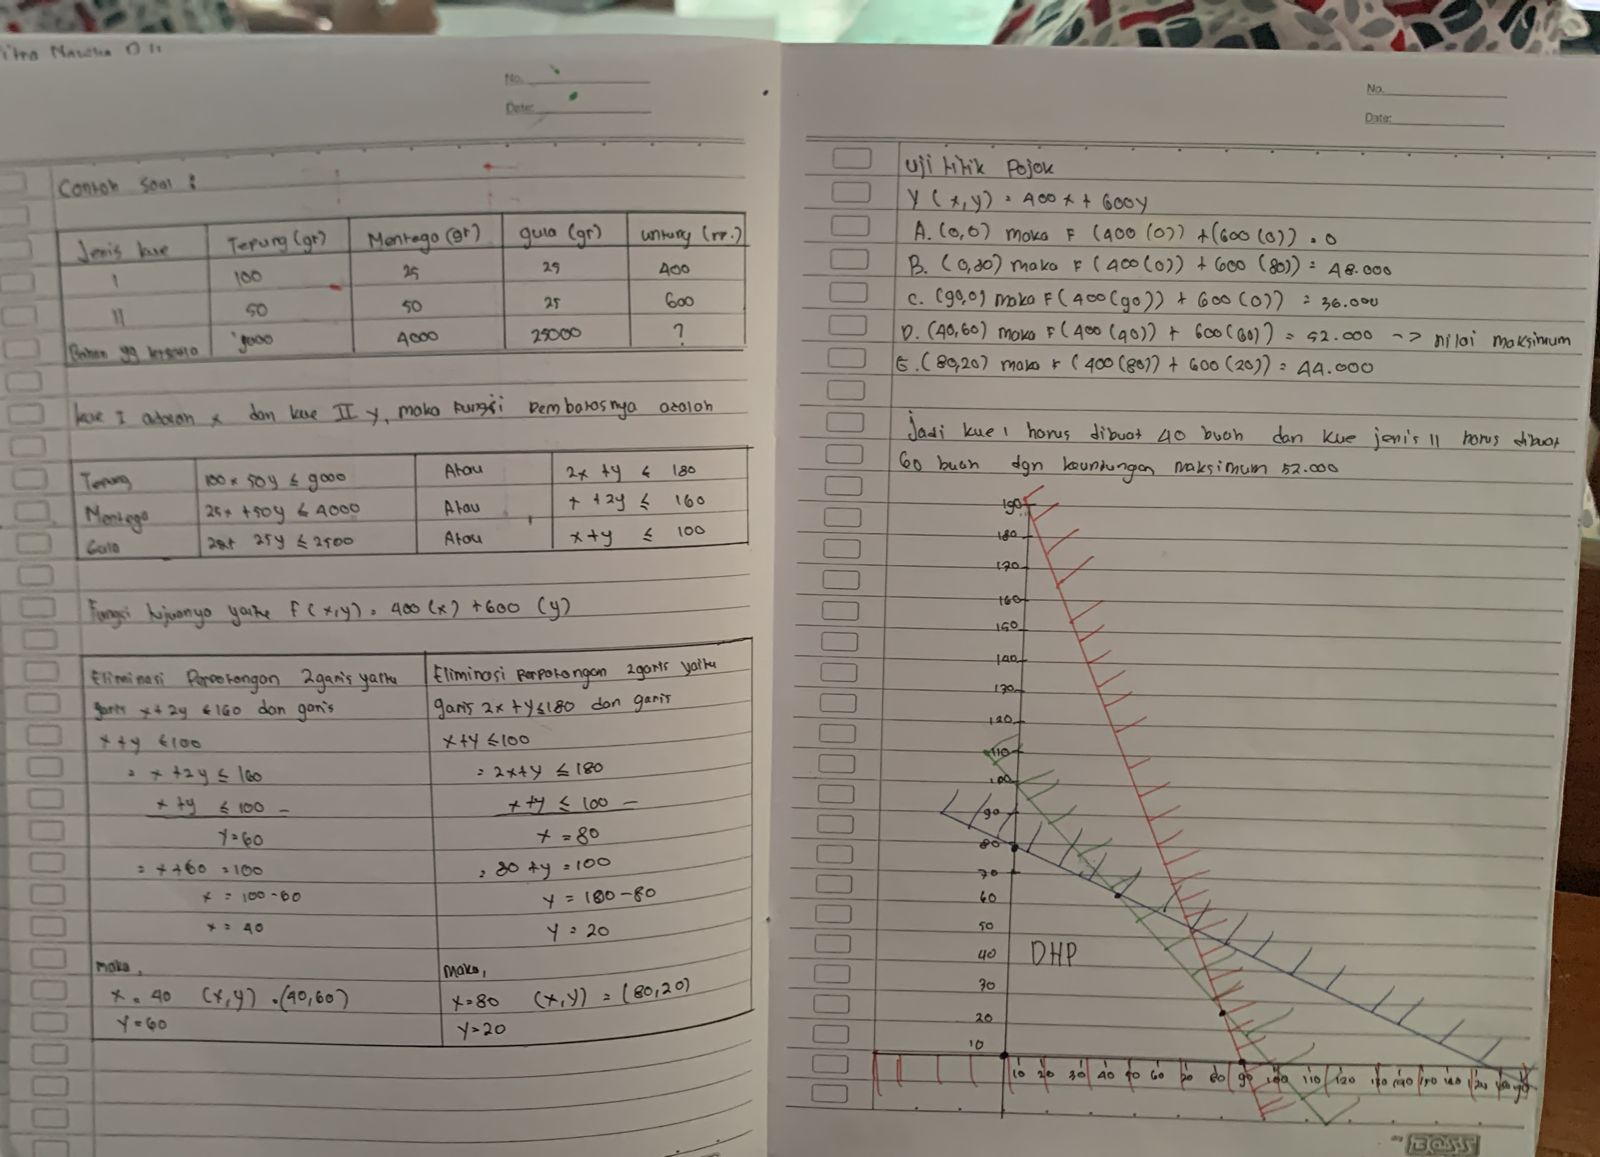 No.
Date:
Contoh soal :
Jenis kue Tepung (gr) Mentega (gr) gula (gr) untung (rp.)
I 100 25 25 400
II 50 50 25 600
Bahan yg tersedia 9000 4000 25000 ?
kue I adalah x dan kue II y, maka fungsi pembatasnya adalah
Tepung 100x 50y ≤ 9000 Atau 2x + y ≤ 180
Mentega 25x + 50y ≤ 4000 Atau x + 2y ≤ 160
Gula 25x+ 25y ≤ 2500 Atau x+y ≤ 100
Fungsi tujuanya yaitu F(x,y) = 400 (x) + 600 (y)
Eliminasi Perpotongan 2 garis yaitu
garis x + 2y ≤ 160 dan garis
x + y ≤ 100
= x + 2y ≤ 160
x + y ≤ 100 –
y = 60
= x + 60 = 100
x = 100 - 60
x = 40
maka,
x = 40 (x,y) = (40,60)
y = 60
Eliminasi perpotongan 2 garis yaitu
garis 2x + y ≤ 180 dan garis
x+y ≤ 100
= 2x+y ≤ 180
x+y ≤ 100 –
x = 80
= 80 + y = 100
y = 100 - 80
y = 20
maka,
x = 80 (x,y) = (80,20)
y = 20
No.
Date:
Uji titik Pojok
Y (x,y) = 400x + 600y
A. (0,0) maka F (400 (0)) + (600 (0)) = 0
B. (0,80) maka F (400(0)) + 600 (80)) = 48.000
C. (90,0) maka F (400(90)) + 600 (0)) = 36.000
D. (40,60) maka F (400 (40)) + 600 (60)) = 52.000 -> nilai maksimum
E. (80,20) maka F (400 (80)) + 600 (20)) = 44.000
Jadi kue I harus dibuat 40 buah dan kue jenis II harus dibuat
60 buah dgn keuntungan maksimum 52.000
190
180
170
160
150
140
130
120
110
100
90
80
70
60
50
40 DHP
30
20
10
10 20 30 40 60 80 90 100 110 120
BOSS